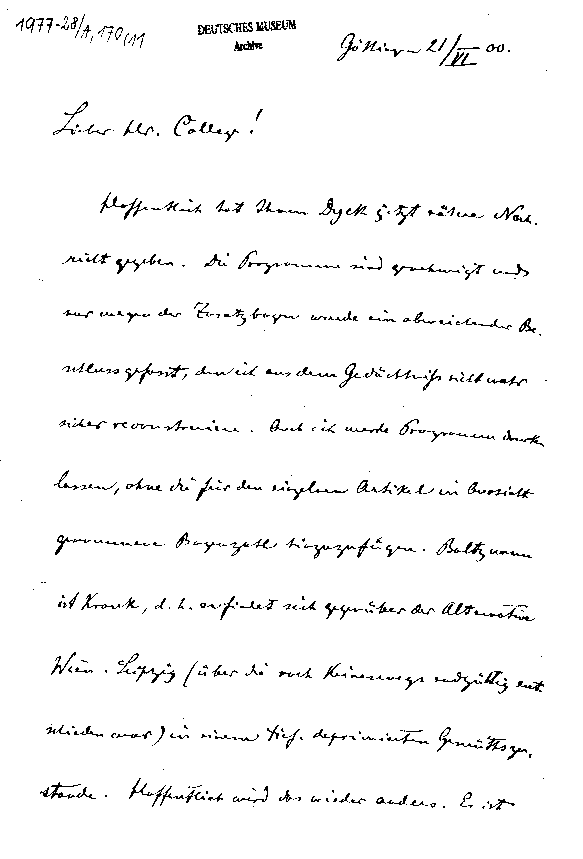 1977-28/A,170(11
DEUTSCHES MUSEUM
Archive
Göttingen 21/VI 00.
Lieber Hr. College!
Hoffentlich hat Ihnen Dyck jetzt nähere Nach-
richt gegeben. Die Programme sind genehmigt und
nur wegen der Zusatzbogen wurde ein abweichender Be-
schluss gefasst, den ich aus dem Gedächtniss nicht mehr
sicher reconstruire. Auch ich werde Programm drucken
lassen, ohne die für den einzelnen Artikel in Aussicht
genommene Bogenzahl hinzuzufügen. Boltzmann
ist krank, d. h. er findet sich gegenüber der Alternative
Wien-Leipzig (über die noch keineswegs endgültig ent-
schieden war) in einem tief deprimierten Gemüthszu-
stande. Hoffentlich wird das wieder anders. Es ist